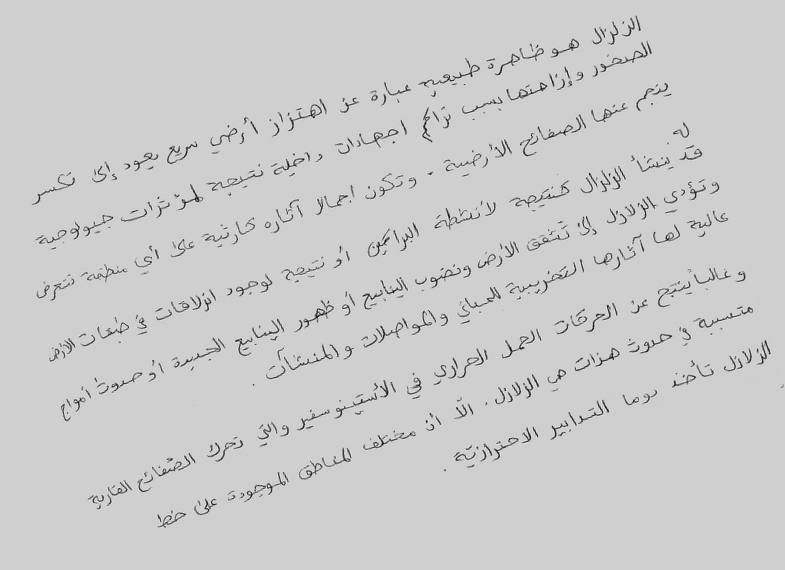 الزلزال هو ظاهرة طبيعية عبارة عن اهتزاز أرضي سريع يعود إلى تكسر
الصخور وإزاحتها بسبب تراكم اجهادات داخلية نتيجة لمؤثرات جيولوجية
ينجم عنها الصفائح الأرضية. وتكون اجمالا آثاره كارثية على أي منطقة تتعرض
له
قد ينشأ الزلزال كنتيجة لأنشطة البراكين أو نتيجة لوجود انزلاقات في طبقات الأرض
وتؤدي الزلازل إلى تشقق الأرض ونضوب الينابيع أو ظهور الينابيع الجديدة أو حدوث أمواج
عالية لها آثارها التخريبية للمباني والمواصلات والمنشآت.
وغالبا ينتج عن الحركات الحمل الحراري في الأستينوسفير والتي تحرك الصفائح القارية
متسببة في حدوث هزات هي الزلازل. الّا أن مختلف المناطق الموجودة على خط
الزلازل تأخذ دوما التدابير الاحترازيّة.